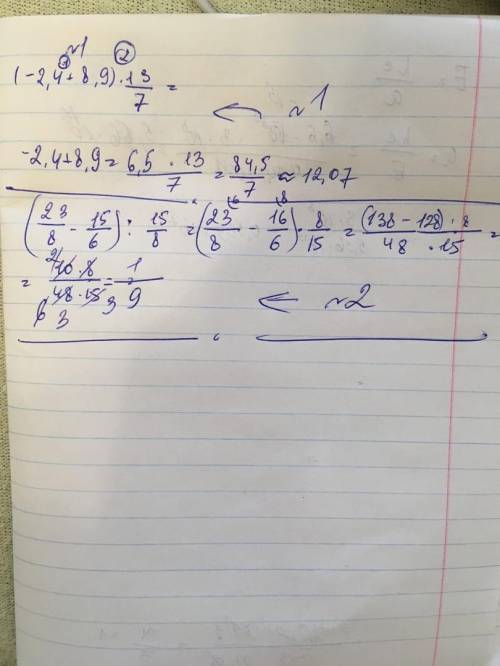 №1
① ②
(-2,4+8,9)·13/7 =
← №1
-2,4+8,9= 6,5·13/7 = 84,5/7 ≈ 12,07
(23/8 - 15/6) : 15/8 = (23/8 - 16/6)·8/15 = (138-128)·8/48·15 =
= 10·8/48·15 = 1/9
← №2